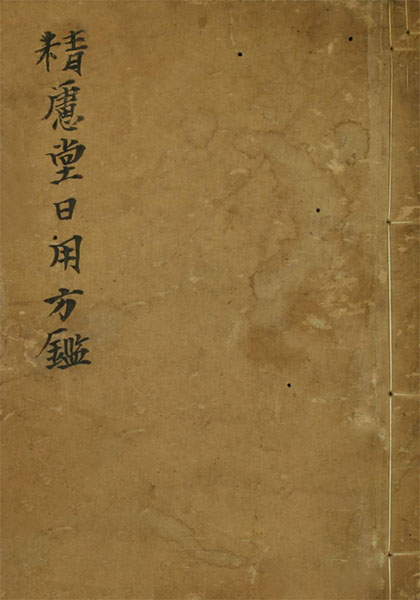 精慮堂日用方鑑